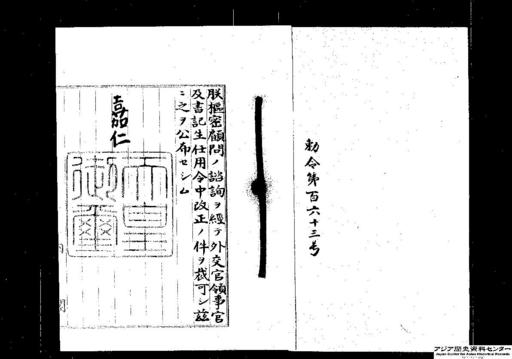 勅令第百六十三号
朕樞密顧問ノ諮詢ヲ經テ外交官領事官
及書記生任用令中改正ノ件ヲ裁可シ茲
ニ之ヲ公布セシム
嘉仁
天皇
御璽
内閣
アジア歴史資料センター
Japan Center for Asian Historical Records